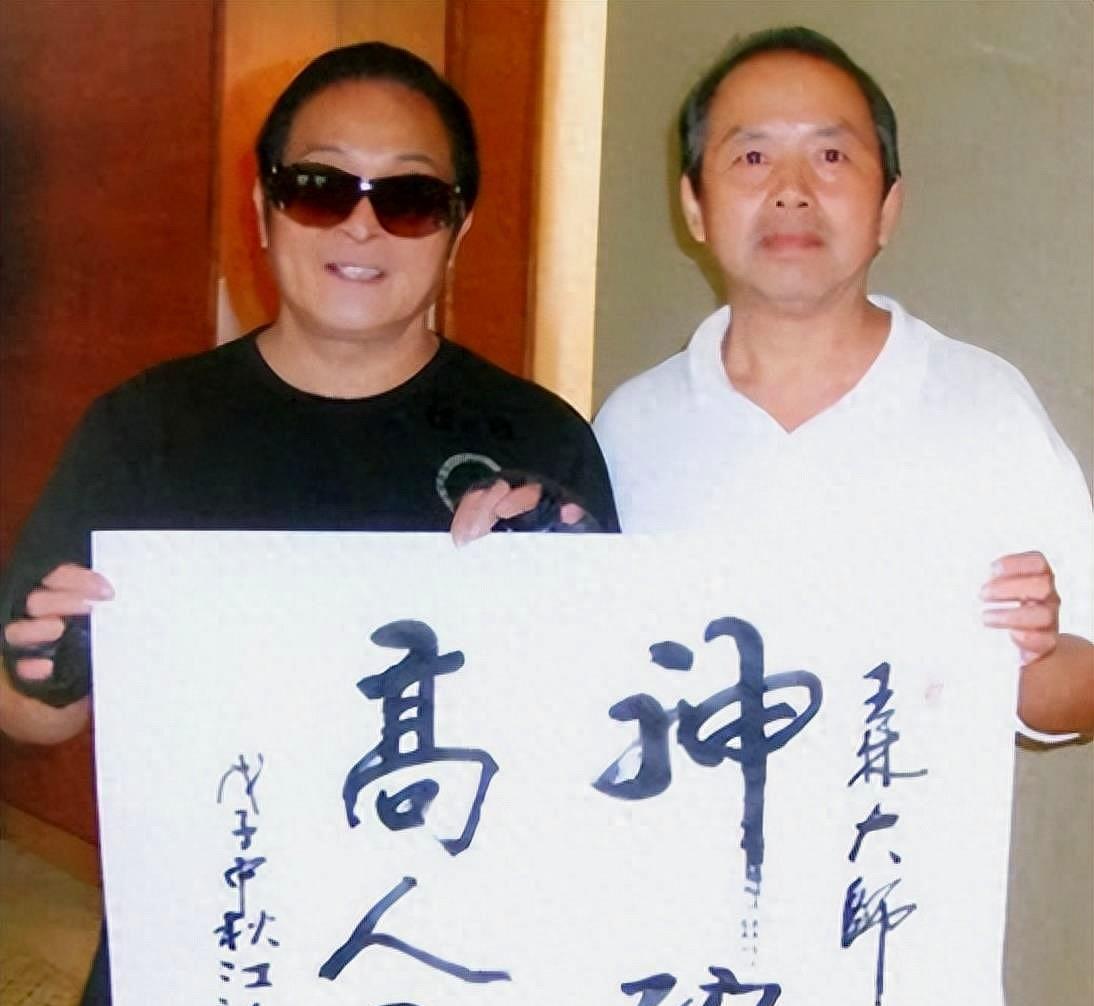 王林大師
神
高人
戊子中秋江